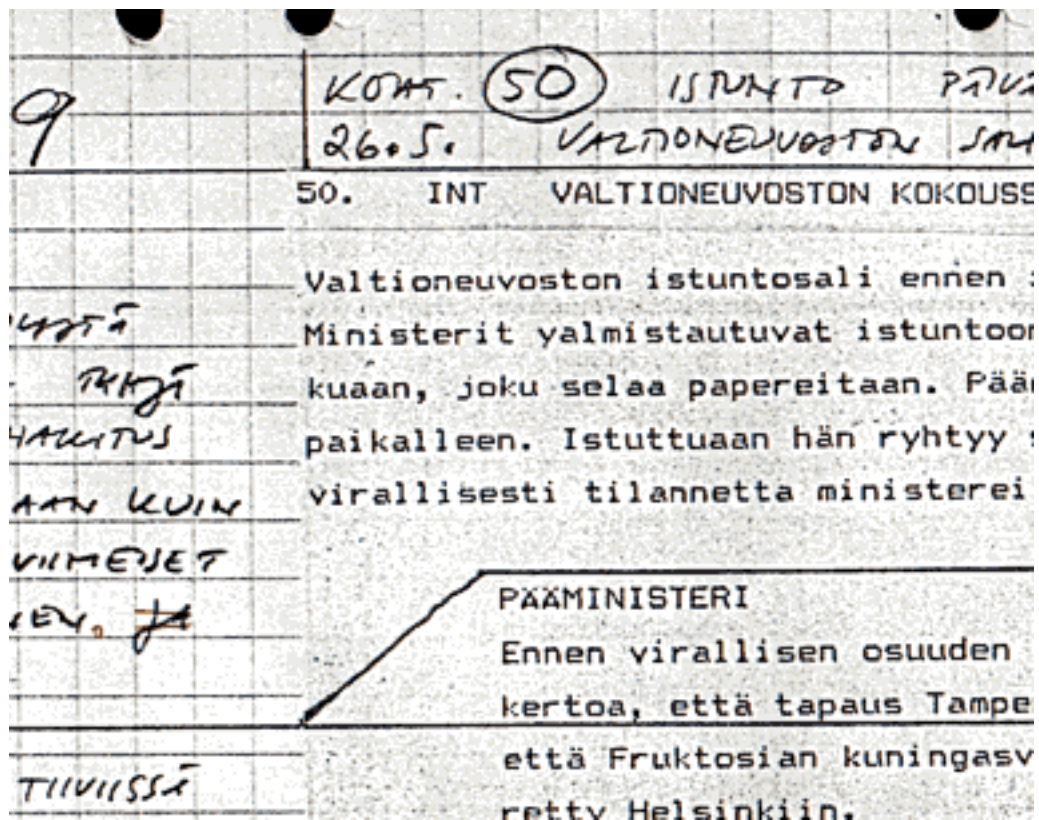 9
KOHT. 50 ISTUNTO PÄIVÄ
26.5. VALTIONEUVOSTON SALI
50. INT VALTIONEUVOSTON KOKOUSS
Valtioneuvoston istuntosali ennen
Ministerit valmistautuvat istuntoon
kuaan, joku selaa papereitaan. Pää
paikalleen. Istuttuaan hän ryhtyy
virallisesti tilannetta ministerei
HALLITUS
AAN KUIN
VIIMEISET
NEN.
PÄÄMINISTERI
Ennen virallisen osuuden
kertoa, että tapaus Tampe
että Fruktosian kuningasv
retty Helsinkiin.
TIIVIISSÄ